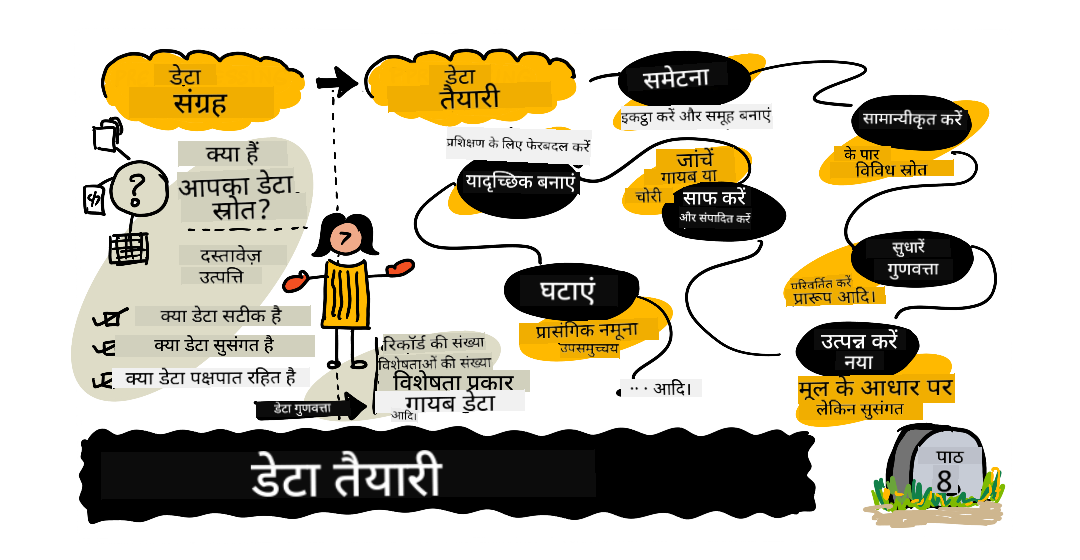 डेटा
संग्रह
डेटा
तैयारी
क्या हैं
आपका डेटा
स्रोत?
दस्तावेज़
उत्पत्ति
क्या डेटा सटीक है
क्या डेटा सुसंगत है
क्या डेटा पक्षपात रहित है
?
डेटा गुणवत्ता
रिकॉर्ड की संख्या
विशेषताओं की संख्या
विशेषता प्रकार
गायब डेटा
आदि।
समेटना
इकट्ठा करें और समूह बनाएं
सामान्यीकृत करें
के पार
विविध स्रोत
सुधारें
गुणवत्ता
परिवर्तित करें
प्रारूप आदि।
उत्पन्न करें
नया
मूल के आधार पर
लेकिन सुसंगत
जांचें
गायब या
चोरी
साफ करें
और संपादित करें
प्रशिक्षण के लिए फेरबदल करें
यादृच्छिक बनाएं
घटाएं
प्रासंगिक नमूना
उपसमुच्चय
... आदि।
डेटा तैयारी
पाठ
8